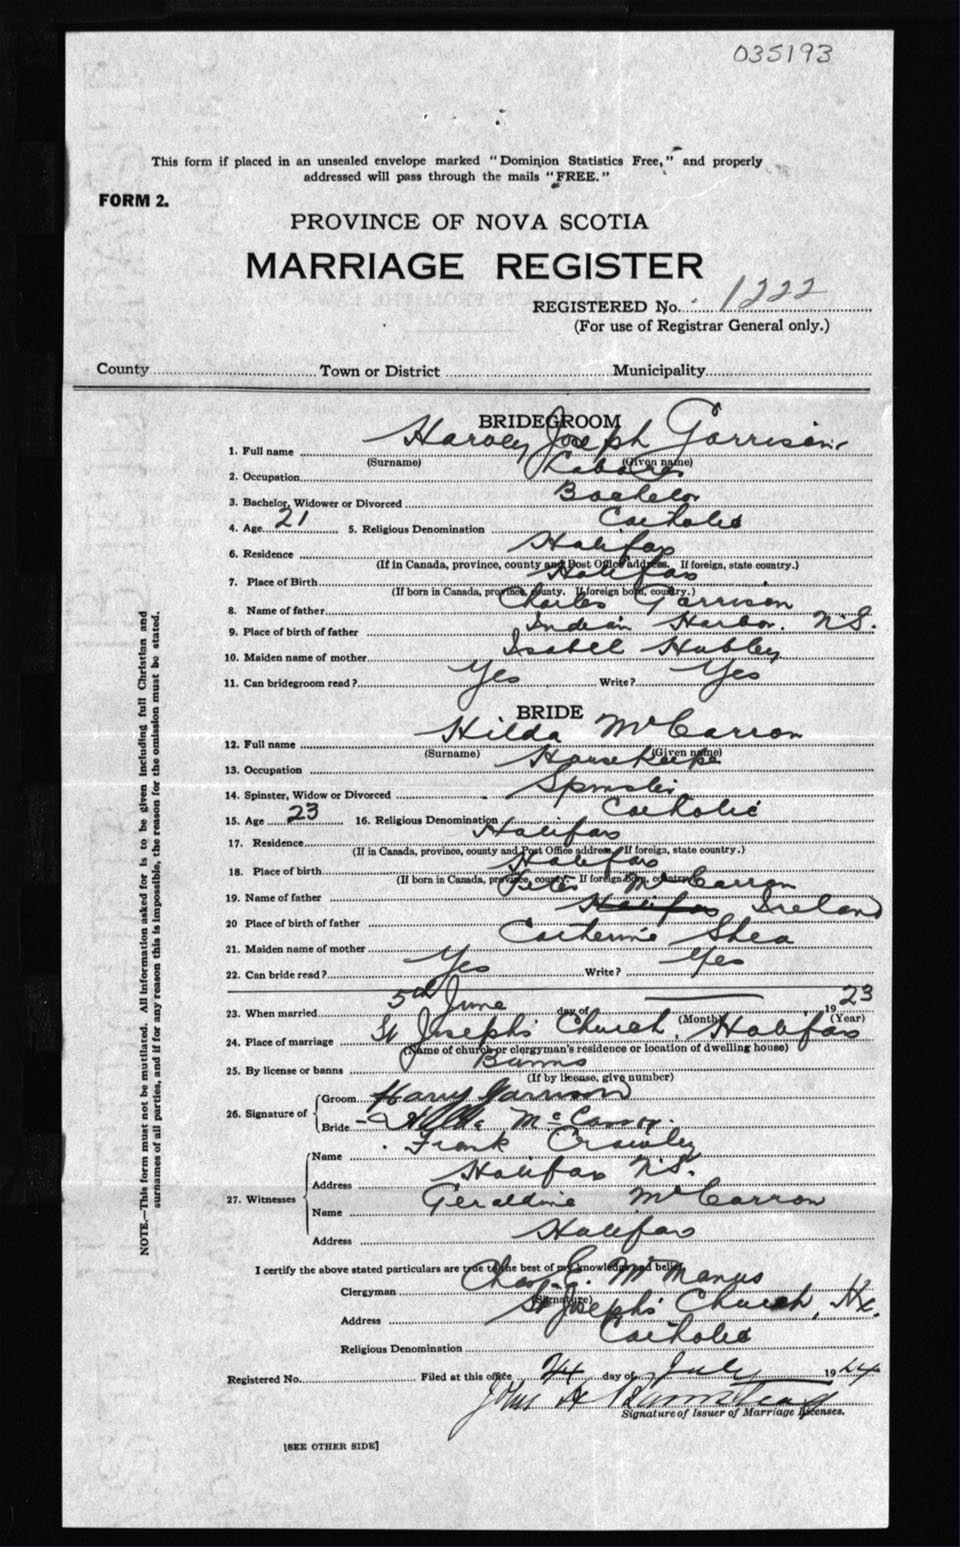 035193
This form if placed in an unsealed envelope marked "Dominion Statistics Free," and properly
addressed will pass through the mails "FREE."
FORM 2.
PROVINCE OF NOVA SCOTIA
MARRIAGE REGISTER
REGISTERED No. 1222
(For use of Registrar General only.)
County Town or District Municipality
BRIDEGROOM
1. Full name Harvey Joseph Garrison
(Surname) (Given name)
2. Occupation Laborer
3. Bachelor, Widower or Divorced Bachelor
4. Age 21 5. Religious Denomination Catholic
6. Residence Halifax
(If in Canada, province, county and Post Office address. If foreign, state country.)
7. Place of Birth Halifax
(If born in Canada, province, county. If foreign born, country.)
8. Name of father Charles Garrison
9. Place of birth of father Indian Harbor. N.S.
10. Maiden name of mother Isabel Hubley
11. Can bridegroom read? Yes Write? Yes
BRIDE
12. Full name Hilda McCarron
(Surname) (Given name)
13. Occupation House Keeper
14. Spinster, Widow or Divorced Spinster
15. Age 23 16. Religious Denomination Catholic
17. Residence Halifax
(If in Canada, province, county and Post Office address. If foreign, state country.)
18. Place of birth Halifax
(If born in Canada, province, county. If foreign born, country.)
19. Name of father Peter McCarron
20 Place of birth of father Halifax Ireland
21. Maiden name of mother Catherine Shea
22. Can bride read? Yes Write? Yes
23. When married 5th June day of 1923
(Month) (Year)
24. Place of marriage St Joseph's Church, Halifax
(Name of church or clergyman's residence or location of dwelling house)
25. By license or banns Banns
(If by license, give number)
26. Signature of Groom Harry Garrison
Bride Hilda McCarron
27. Witnesses Name Frank Crawley
Address Halifax N.S.
Name Geraldine McCarron
Address Halifax
I certify the above stated particulars are true to the best of my knowledge and belief.
Clergyman Chas. E. McManus
(Signature)
Address St Joseph's Church, Hx.
Religious Denomination Catholic
Registered No. Filed at this office 24 day of July 1924
John
Signature of Issuer of Marriage Licenses.
[SEE OTHER SIDE]
NOTE.—This form must not be mutilated. All information asked for is to be given including full Christian and
surnames of all parties, and if for any reason this is impossible, the reason for the omission must be stated.